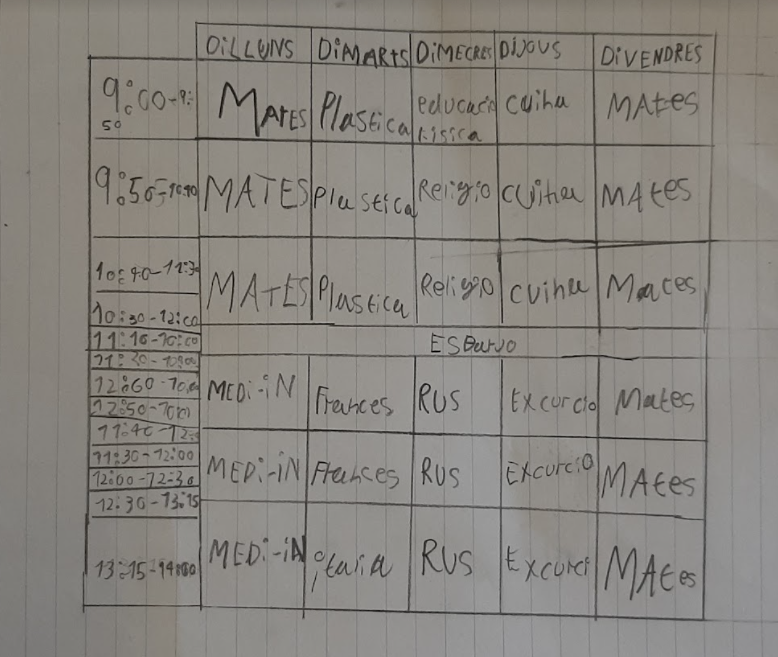 DiLLUNS DiMARTS DiMECRES DiJOUS DiVENDRES
9:00-9:50 MATES Plastica educació fisica cuina MAtes
9:50-10:40 MATES Plastica Religio cuina MAtes
10:40-11:30 MATES Plastica Religio cuina Mates
10:30-12:00
11:10-10:00
ESBarjo
11:30-
12:60- MEDi-iN Frances RUS Excurcio Mates
12:50-
11:40-12:
11:30-12:00 MEDi-iN Frances RUS Excurcio MAtes
12:00-12:30
12:30-13:15
13:15-14:00 MEDi-iN itaria RUS Excurci MAtes